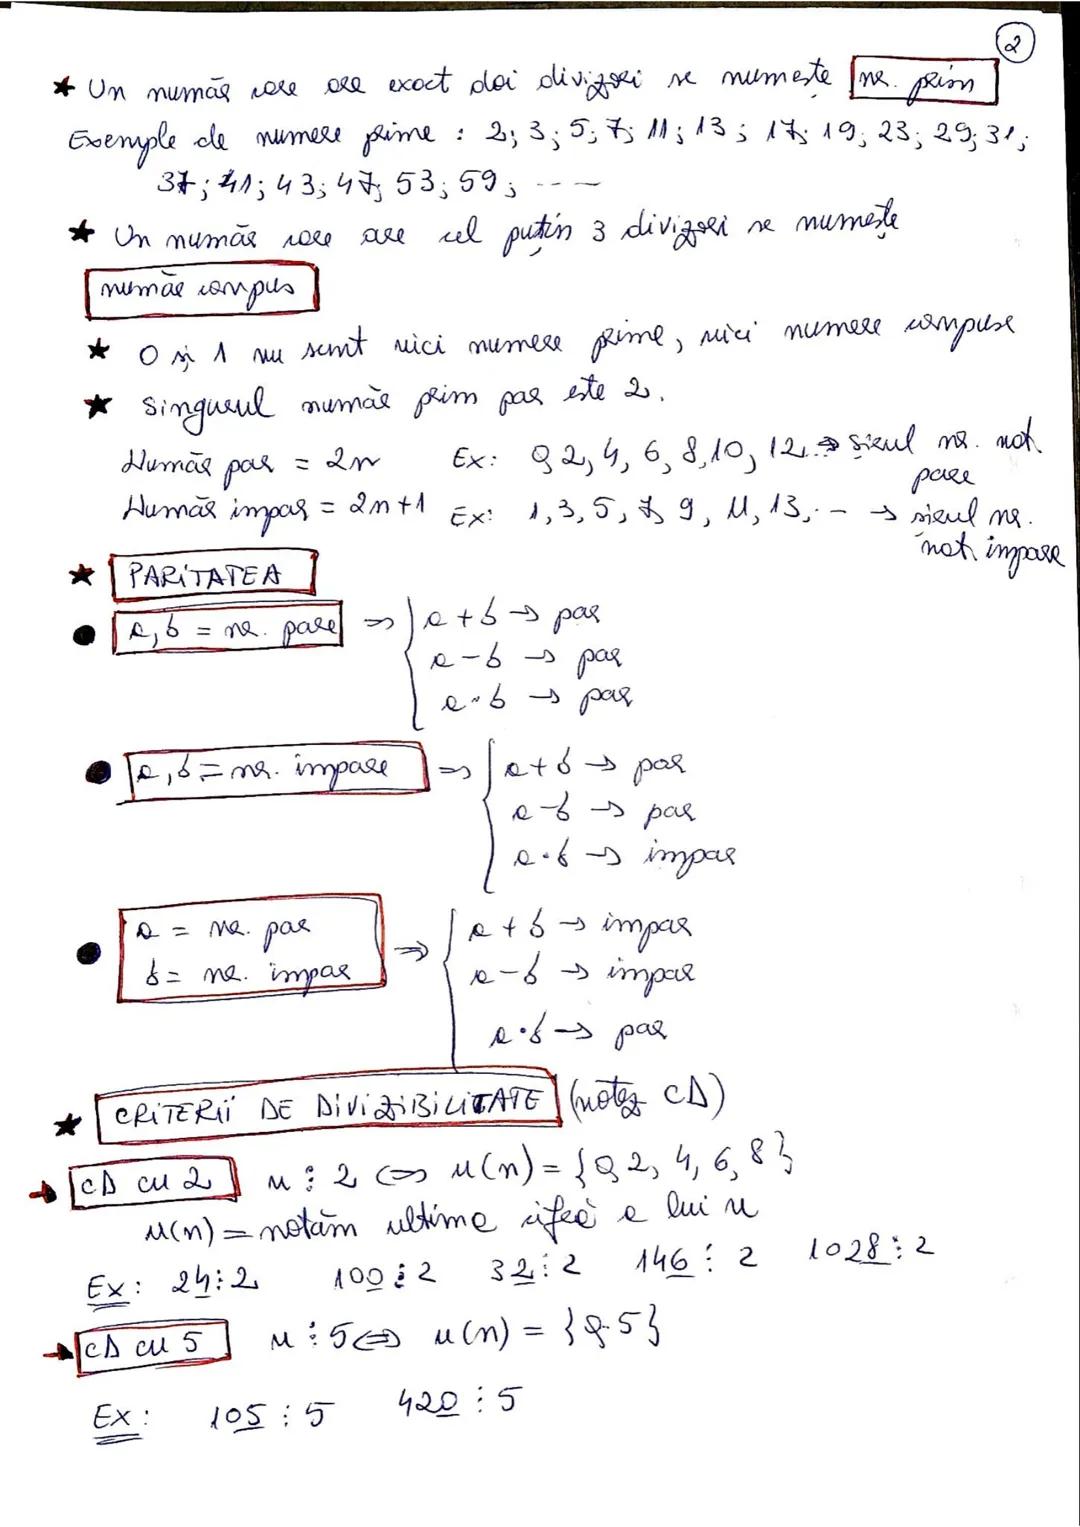 2
★ Un număr care are exact doi divizori se numește nr. prim
Exemple de numere prime : 2; 3; 5; 7; 11; 13; 17; 19; 23; 29; 31;
37; 41; 43; 47; 53; 59; ----
★ Un număr care are cel puțin 3 divizori se numește
număr compus
★ 0 și 1 nu sunt nici numere prime, nici numere compuse
★ Singurul număr prim par este 2.
Număr par = 2n Ex: 0, 2, 4, 6, 8, 10, 12... → șirul nr. nat.
pare
Număr impar = 2n+1 Ex: 1, 3, 5, 7, 9, 11, 13, .. → șirul nr.
nat. impare
★ PARITATEA
● a, b = nr. pare ⇒ { a + b → par
a - b → par
a · b → par
● a, b = nr. impare ⇒ { a + b → par
a - b → par
a · b → impar
● a = nr. par
b = nr. impar ⇒ { a + b → impar
a - b → impar
a · b → par
★ CRITERII DE DIVIZIBILITATE (notez CΔ)
→ CΔ cu 2 n ⋮ 2 ⇔ u(n) = {0, 2, 4, 6, 8}
u(n) = notăm ultima cifră a lui n
Ex: 24 ⋮ 2 100 ⋮ 2 32 ⋮ 2 146 ⋮ 2 1028 ⋮ 2
→ CΔ cu 5 n ⋮ 5 ⇔ u(n) = {0, 5}
Ex: 105 ⋮ 5 420 ⋮ 5